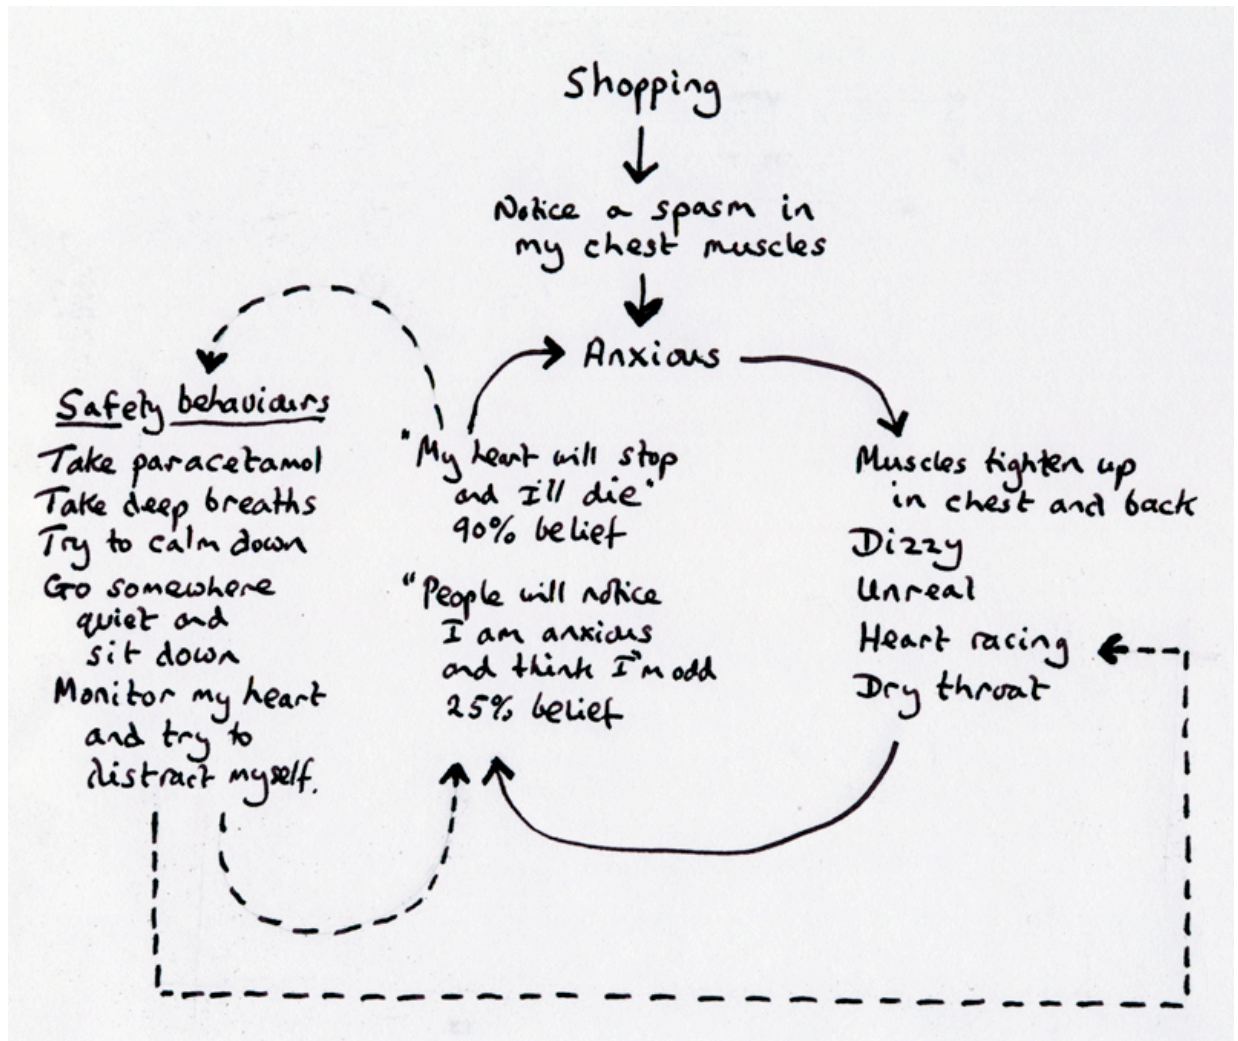 Shopping
Notice a spasm in
my chest muscles
Anxious
Safety behaviours
Take paracetamol
Take deep breaths
Try to calm down
Go somewhere
quiet and
sit down
Monitor my heart
and try to
distract myself.
"My heart will stop
and I'll die"
90% belief
"People will notice
I am anxious
and think I'm odd"
25% belief
Muscles tighten up
in chest and back
Dizzy
Unreal
Heart racing
Dry throat